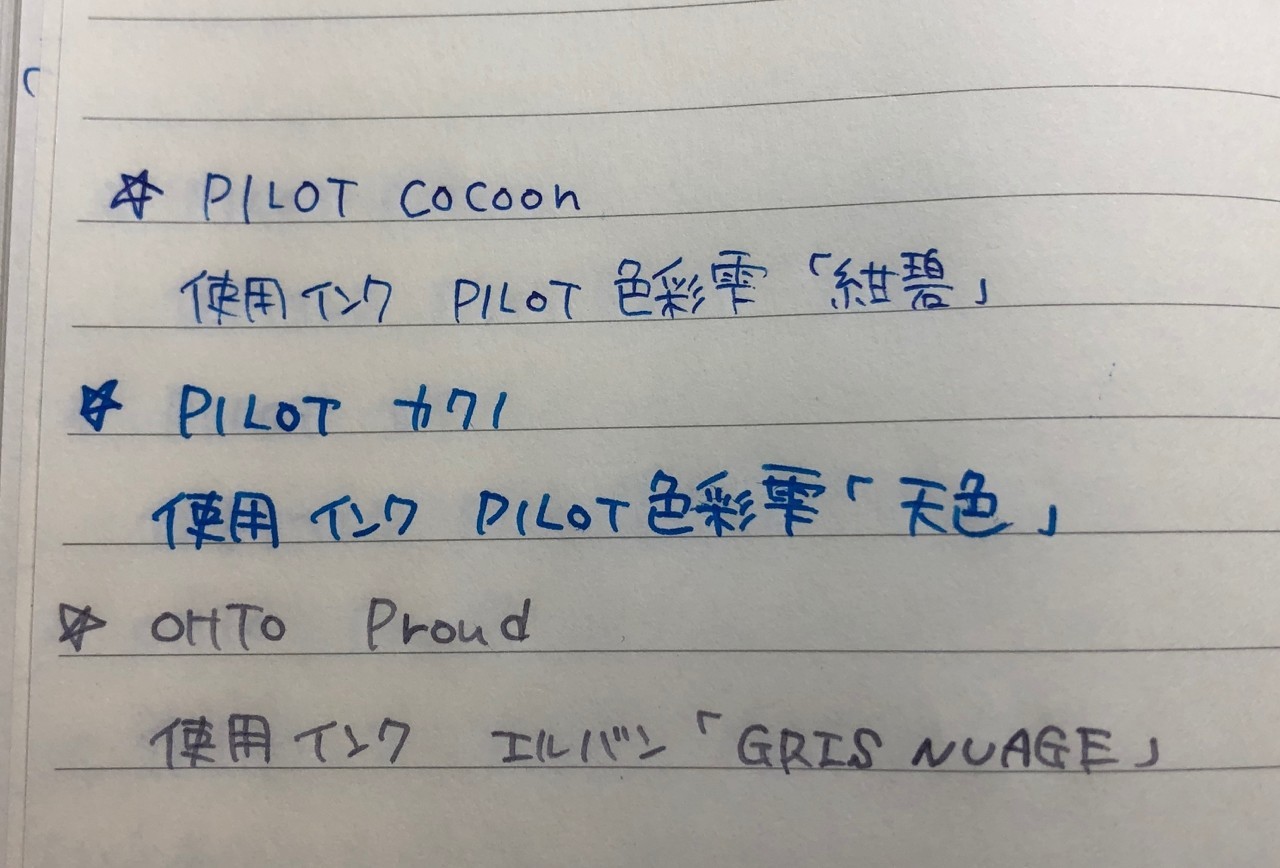 ☆ PILOT cocoon
使用インク PILOT 色彩雫「紺碧」
☆ PILOT カクノ
使用インク PILOT 色彩雫「天色」
☆ OHTO Proud
使用インク エルバン「GRIS NUAGE」